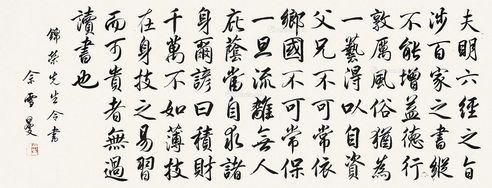 夫明六經之旨
涉百家之書縱
不能增益德行
敦厲風俗猶為
一藝得以自資
父兄不可常依
鄉國不可常保
一旦流離无人
庇蔭當自求諸
身爾諺曰積財
千萬不如薄技
在身技之易習
而可貴者無過
讀書也
錦榮先生令書
余雪曼